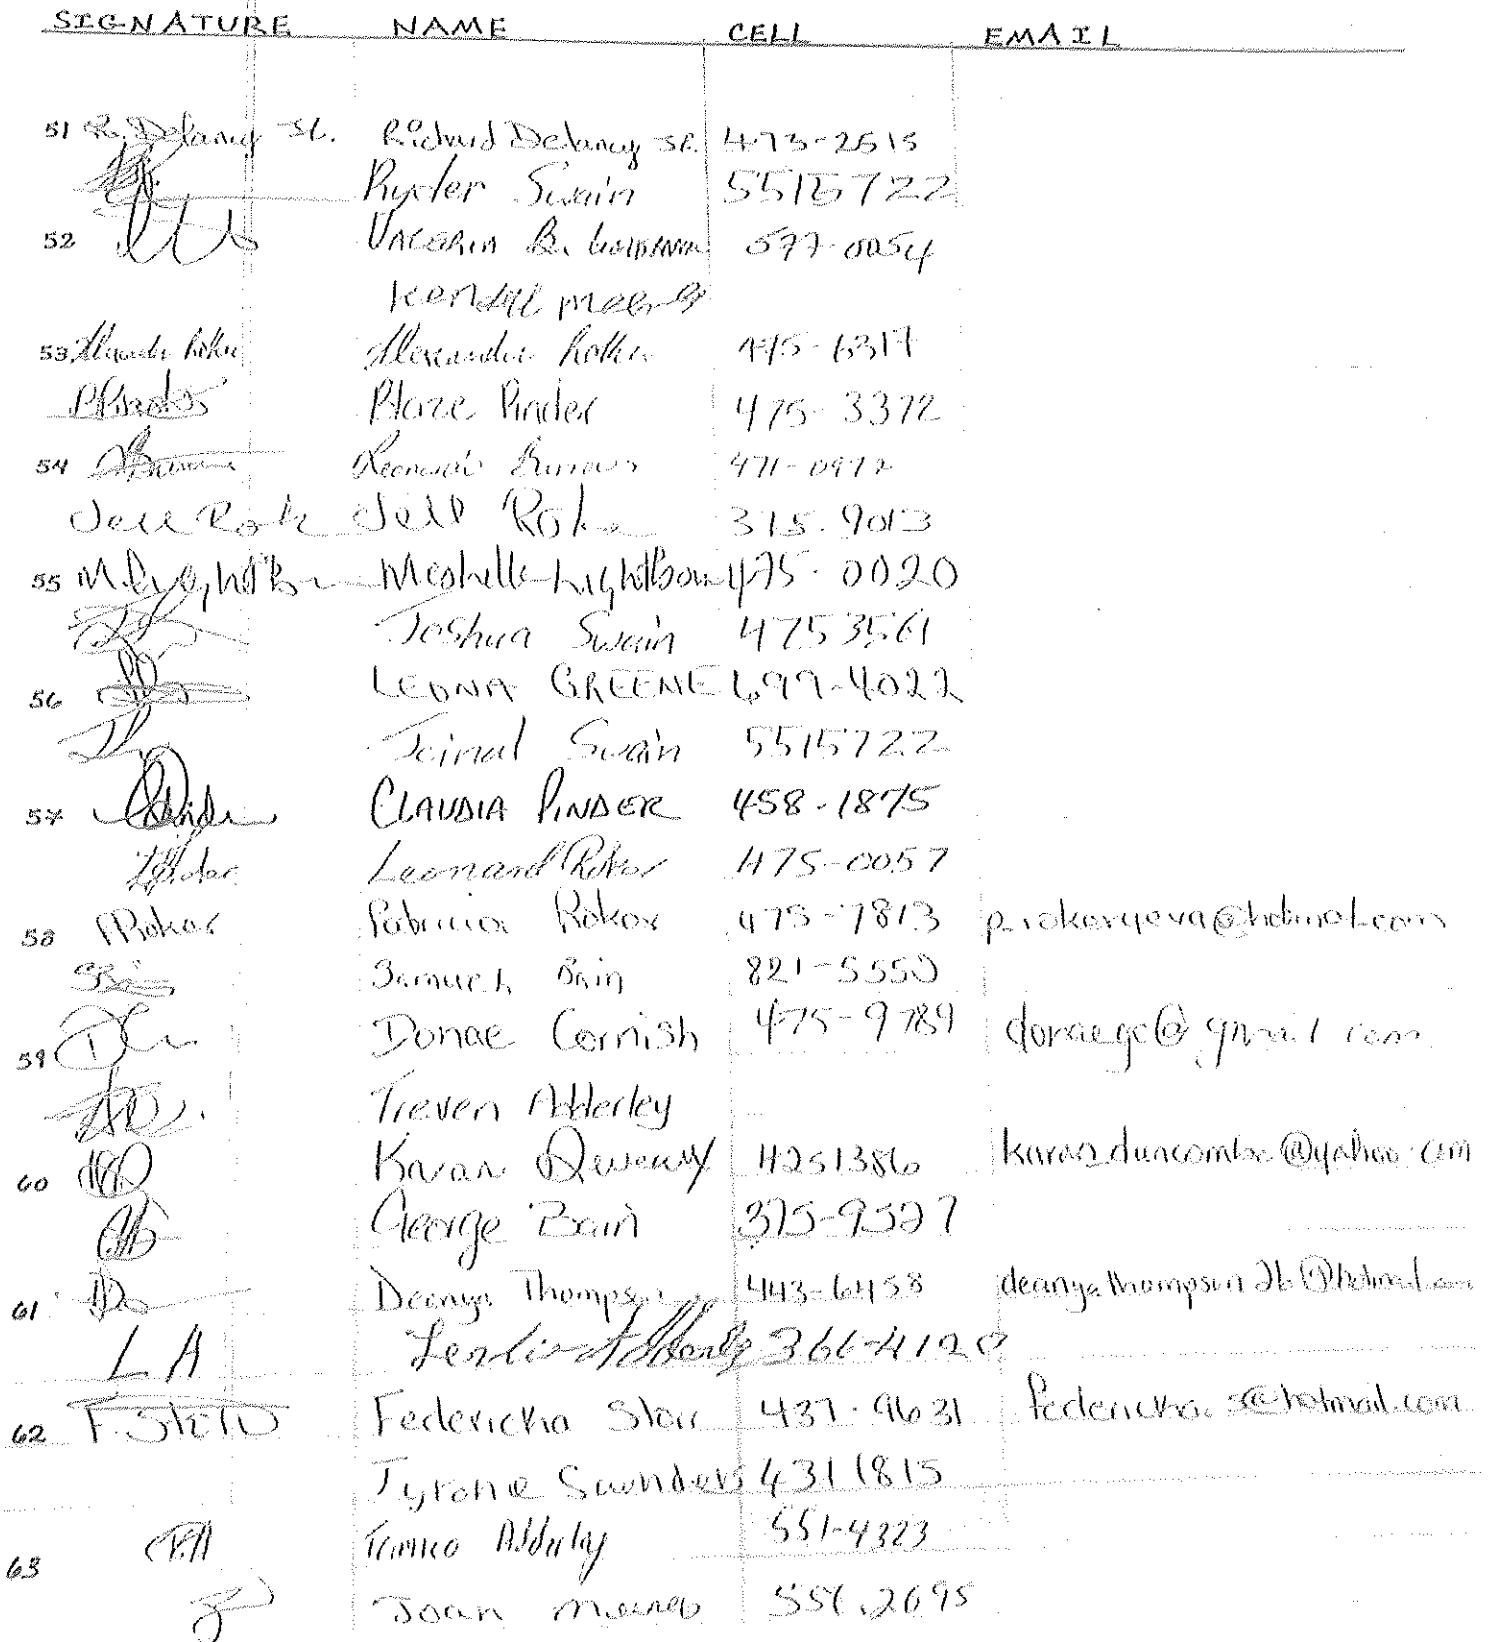 SIGNATURE NAME CELL EMAIL
51 R. Delancy Sr. Richard Delancy Sr. 473-2515
Ryder Swain 5515722
52 VALERIA B. 577-0054
Kendal
53 Alexander Roker Alexander Roker 475-6317
Blaze Pinder 475-3372
54 Burrows 471-0972
Jell Roke Jell Roke 375.9013
55 M. Lightbo Meshelle Lightbourn 475-0020
Joshua Swain 4753561
56 LEONA GREENE 699-4022
Jeinal Swain 5515722
57 CLAUDIA PINDER 458-1875
Leonard Roker 475-0057
58 PRoker Patricia Roker 475-7813
SBain Samuel Bain 821-5550
59 Donae Cornish 475-9789 donaegc@gmail.com
Treven Adderley
60 Karan 4251386 karan_duncombe@yahoo.com
George Bain 375-9527
61 Deanya Thompson 443-6458 deanyathompson26@hotmail.com
LA Adderly 366-4120
62 F. Federicka Starr 437-9631 federicka.s@hotmail.com
Tyrone Saunders 4311815
63 T.A Tamico Adderley 551-4323
Joan 556.2695